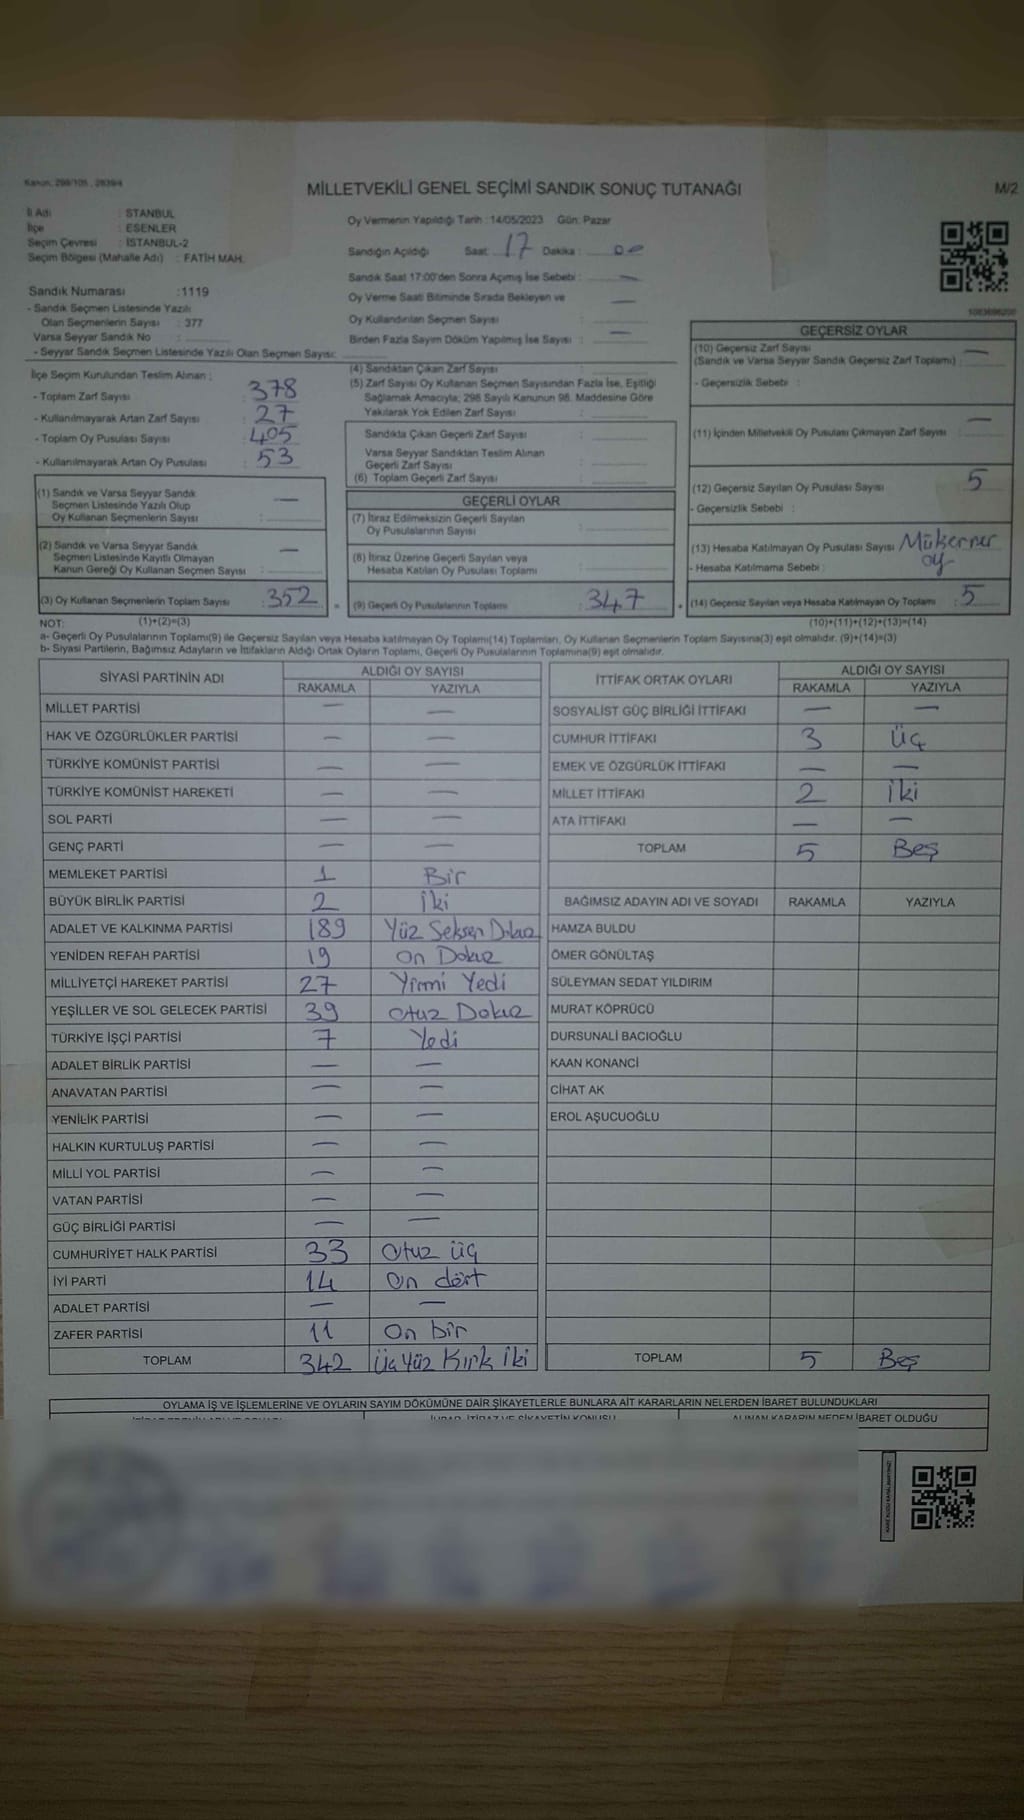 Kanun, 298/105 , 2839/4
MİLLETVEKİLİ GENEL SEÇİMİ SANDIK SONUÇ TUTANAĞI
M/2
İl Adı : STANBUL
İlçe : ESENLER
Seçim Çevresi : İSTANBUL-2
Seçim Bölgesi (Mahalle Adı) : FATİH MAH.
Sandık Numarası :1119
- Sandık Seçmen Listesinde Yazılı
Olan Seçmenlerin Sayısı : 377
Varsa Seyyar Sandık No :
- Seyyar Sandık Seçmen Listesinde Yazılı Olan Seçmen Sayısı:
İlçe Seçim Kurulundan Teslim Alınan ;
- Toplam Zarf Sayısı : 378
- Kullanılmayarak Artan Zarf Sayısı : 27
- Toplam Oy Pusulası Sayısı : 405
- Kullanılmayarak Artan Oy Pusulası : 53
(1) Sandık ve Varsa Seyyar Sandık
Seçmen Listesinde Yazılı Olup
Oy Kullanan Seçmenlerin Sayısı : —
(2) Sandık ve Varsa Seyyar Sandık
Seçmen Listesinde Kayıtlı Olmayan
Kanun Gereği Oy Kullanan Seçmen Sayısı : —
(3) Oy Kullanan Seçmenlerin Toplam Sayısı : 352
Oy Vermenin Yapıldığı Tarih : 14/05/2023 Gün: Pazar
Sandığın Açıldığı Saat: 17 Dakika : 00
Sandık Saat 17:00'den Sonra Açımış İse Sebebi : —
Oy Verme Saati Bitiminde Sırada Bekleyen ve —
Oy Kullandırılan Seçmen Sayısı :
Birden Fazla Sayım Döküm Yapılmış İse Sayısı : —
(4) Sandıktan Çıkan Zarf Sayısı :
(5) Zarf Sayısı Oy Kullanan Seçmen Sayısından Fazla İse, Eşitliği
Sağlamak Amacıyla; 298 Sayılı Kanunun 98. Maddesine Göre
Yakılarak Yok Edilen Zarf Sayısı :
Sandıkta Çıkan Geçerli Zarf Sayısı :
Varsa Seyyar Sandıktan Teslim Alınan
Geçerli Zarf Sayısı :
(6) Toplam Geçerli Zarf Sayısı :
GEÇERLİ OYLAR
(7) İtiraz Edilmeksizin Geçerli Sayılan
Oy Pusulalarının Sayısı :
(8) İtiraz Üzerine Geçerli Sayılan veya
Hesaba Katılan Oy Pusulası Toplamı :
= (9) Geçerli Oy Pusulalarının Toplamı : 347 +
GEÇERSİZ OYLAR
(10) Geçersiz Zarf Sayısı —
(Sandık ve Varsa Seyyar Sandık Geçersiz Zarf Toplamı) :
- Geçersizlik Sebebi :
(11) İçinden Milletvekili Oy Pusulası Çıkmayan Zarf Sayısı : —
(12) Geçersiz Sayılan Oy Pusulası Sayısı : 5
- Geçersizlik Sebebi :
(13) Hesaba Katılmayan Oy Pusulası Sayısı : Mükerrer
- Hesaba Katılmama Sebebi : oy
(14) Geçersiz Sayılan veya Hesaba Katılmayan Oy Toplamı : 5
NOT: (1)+(2)=(3) (10)+(11)+(12)+(13)=(14)
a- Geçerli Oy Pusulalarının Toplamı(9) ile Geçersiz Sayılan veya Hesaba katılmayan Oy Toplamı(14) Toplamları, Oy Kullanan Seçmenlerin Toplam Sayısına(3) eşit olmalıdır. (9)+(14)=(3)
b- Siyasi Partilerin, Bağımsız Adayların ve İttifakların Aldığı Ortak Oyların Toplamı, Geçerli Oy Pusulalarının Toplamına(9) eşit olmalıdır.
SİYASİ PARTİNİN ADI ALDIĞI OY SAYISI
RAKAMLA YAZIYLA
MİLLET PARTİSİ — —
HAK VE ÖZGÜRLÜKLER PARTİSİ — —
TÜRKİYE KOMÜNİST PARTİSİ — —
TÜRKİYE KOMÜNİST HAREKETİ — —
SOL PARTİ — —
GENÇ PARTİ — —
MEMLEKET PARTİSİ 1 Bir
BÜYÜK BİRLİK PARTİSİ 2 İki
ADALET VE KALKINMA PARTİSİ 189 Yüz Seksen Dokuz
YENİDEN REFAH PARTİSİ 19 On Dokuz
MİLLİYETÇİ HAREKET PARTİSİ 27 Yirmi Yedi
YEŞİLLER VE SOL GELECEK PARTİSİ 39 Otuz Dokuz
TÜRKİYE İŞÇİ PARTİSİ 7 Yedi
ADALET BİRLİK PARTİSİ — —
ANAVATAN PARTİSİ — —
YENİLİK PARTİSİ — —
HALKIN KURTULUŞ PARTİSİ — —
MİLLİ YOL PARTİSİ — —
VATAN PARTİSİ — —
GÜÇ BİRLİĞİ PARTİSİ — —
CUMHURİYET HALK PARTİSİ 33 Otuz üç
İYİ PARTİ 14 On dört
ADALET PARTİSİ — —
ZAFER PARTİSİ 11 On bir
TOPLAM 342 Üç Yüz Kırk İki
İTTİFAK ORTAK OYLARI ALDIĞI OY SAYISI
RAKAMLA YAZIYLA
SOSYALİST GÜÇ BİRLİĞİ İTTİFAKI — —
CUMHUR İTTİFAKI 3 Üç
EMEK VE ÖZGÜRLÜK İTTİFAKI — —
MİLLET İTTİFAKI 2 İki
ATA İTTİFAKI — —
TOPLAM 5 Beş
BAĞIMSIZ ADAYIN ADI VE SOYADI RAKAMLA YAZIYLA
HAMZA BULDU
ÖMER GÖNÜLTAŞ
SÜLEYMAN SEDAT YILDIRIM
MURAT KÖPRÜCÜ
DURSUNALİ BACIOĞLU
KAAN KONANCİ
CİHAT AK
EROL AŞUCUOĞLU
TOPLAM 5 Beş
OYLAMA İŞ VE İŞLEMLERİNE VE OYLARIN SAYIM DÖKÜMÜNE DAİR ŞİKAYETLERLE BUNLARA AİT KARARLARIN NELERDEN İBARET BULUNDUKLARI
ALINAN KARARIN NEDEN İBARET OLDUĞU